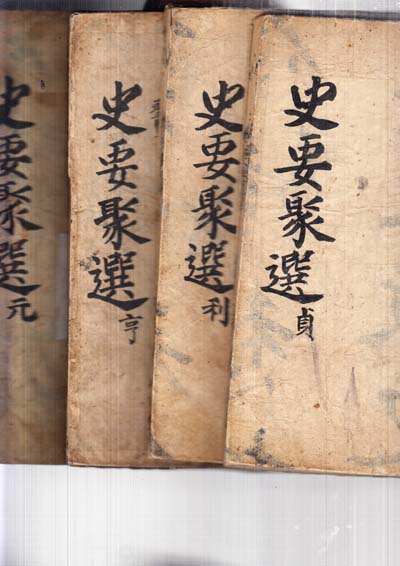 史要聚選 元
史要聚選 亨
史要聚選 利
史要聚選 貞